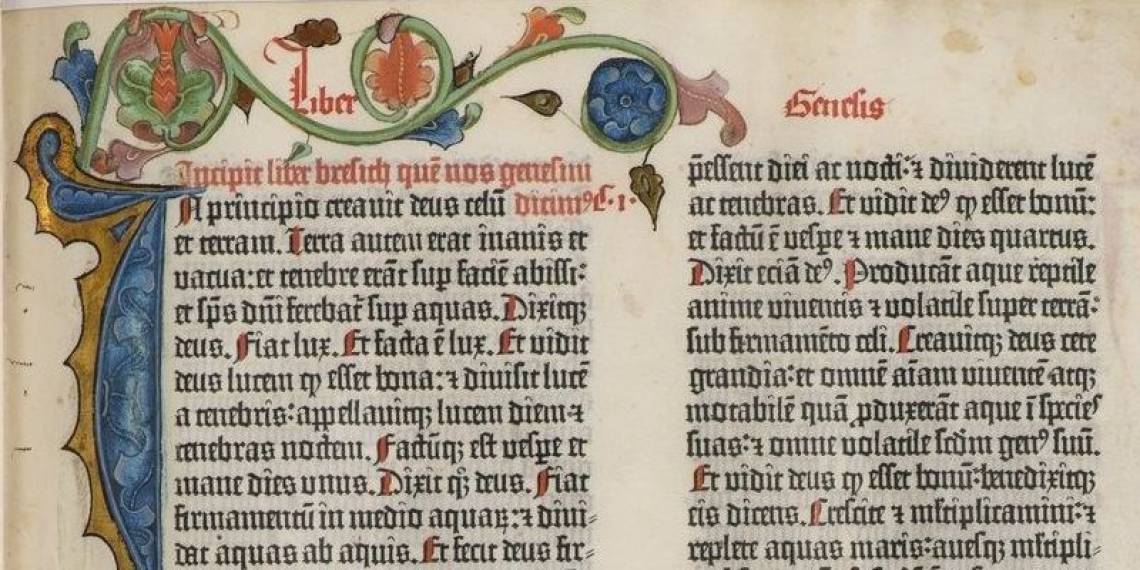 Liber
Genesis
Incipit liber bresith quē nos genesim
In principio creauit deus celū dicim⁹ C. 1.
et terram. Terra autem erat inanis et
vacua: et tenebre erāt sup faciē abissi:
et sp̄s dn̄i ferebat᷑ sup aquas. Dixitqꝫ
deus. Fiat lux. Et facta ē lux. Et vidit
deus lucem ꝙ esset bona: ⁊ diuisit lucē
a tenebris: appellauitqꝫ lucem diem ⁊
tenebras noctem. Factūqꝫ est vesꝑe et
mane dies vnus. Dixit qꝫ deus. Fiat
firmamentū in medio aquaꝝ: ⁊ diui⸗
dat aquas ab aquis. Et fecit deus fir⸗
p̄essent diei ac nocti: ⁊ diuiderent lucē
ac tenebras. Et vidit de⁹ ꝙ esset bonū:
et factū ē vesꝑe ⁊ mane dies quartus.
Dixit eciā de⁹. Producāt aque reptile
anime viuentis ⁊ volatile super terrā:
sub firmamēto celi. Creauitqꝫ deus cete
grandia: et omnē aīam viuentē atqꝫ
motabilē quā ꝓduxerāt aque ī species
suas: ⁊ omne volatile scdm gen⁹ suū.
Et vidit deus ꝙ esset bonū: benedixitqꝫ
eis dicens. Crescite ⁊ mltiplicamini: ⁊
replete aquas maris: auesqꝫ mltipli⸗